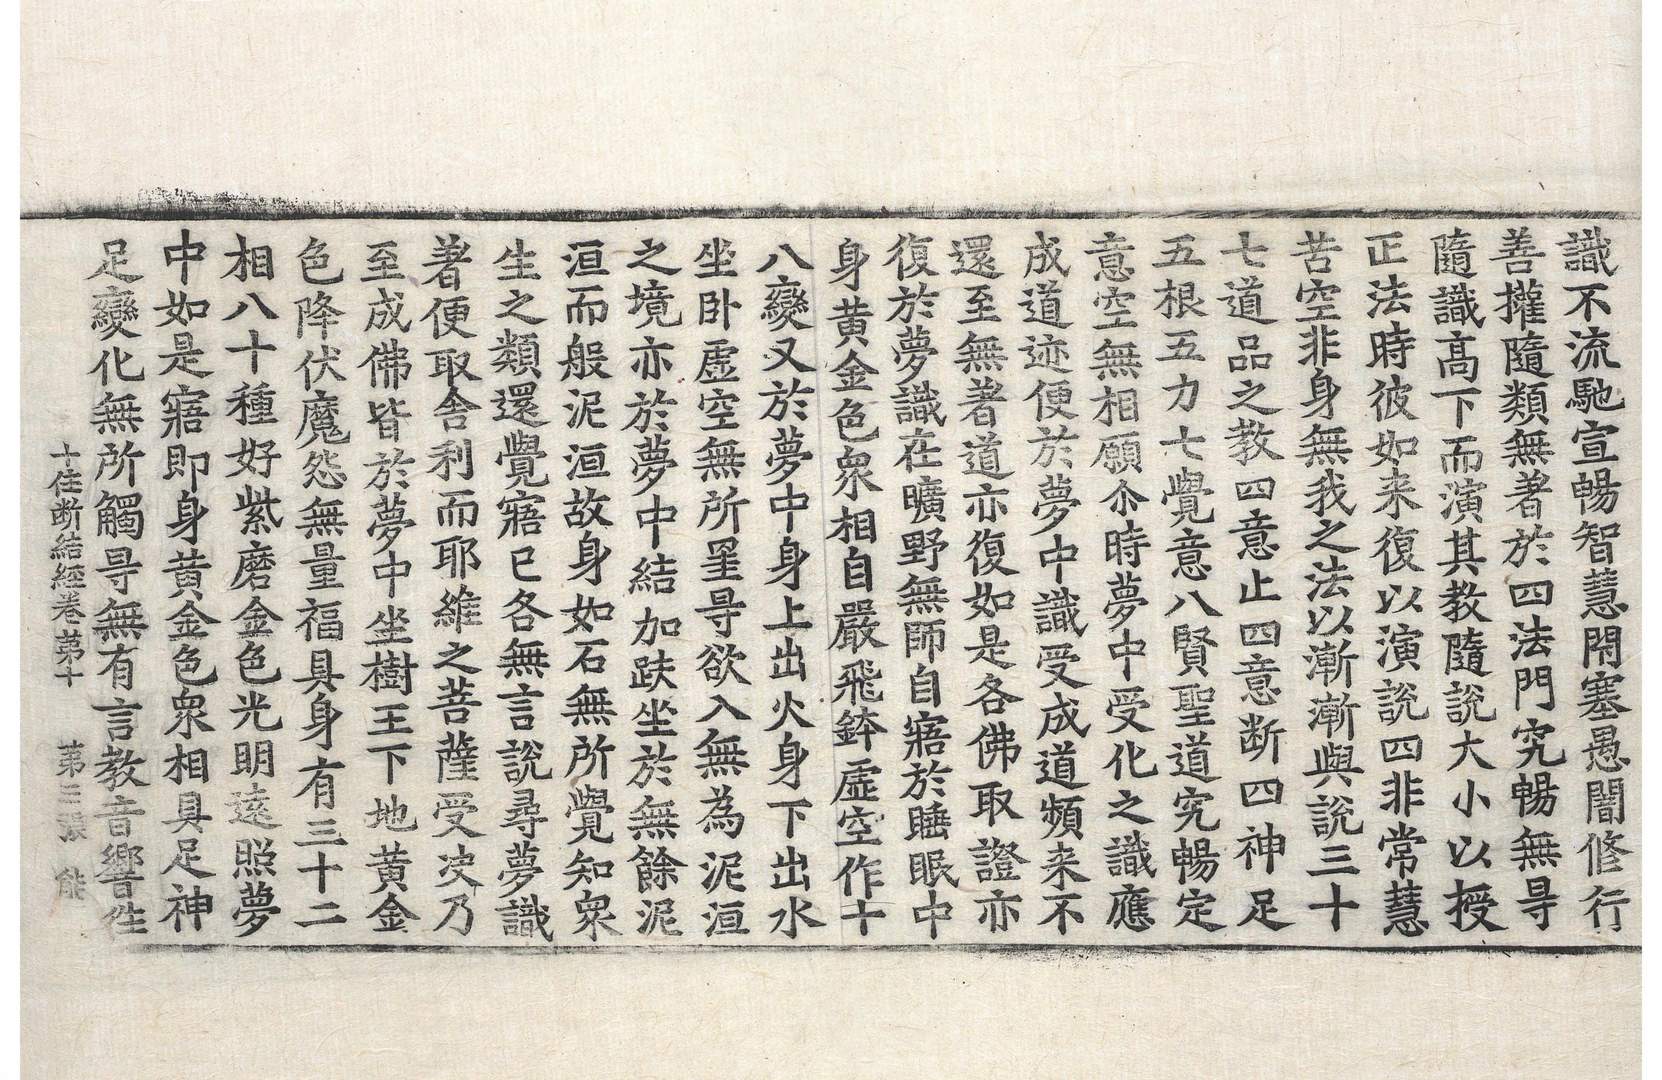 識不流馳宣暢智慧閇塞愚闇修行
善攉隨類無著於四法門究暢無㝵
隨識高下而演其教隨說大小以授
正法時彼如来復以演說四非常慧
苦空非身無我之法以漸漸與說三十
七道品之教四意止四意断四神足
五根五力七覺意八賢聖道究暢定
意空無相願尒時夢中受化之識應
成道迹便於夢中識受成道頻来不
還至無著道亦復如是各佛取證亦
復於夢識在曠野無師自寤於睡眠中
身黃金色衆相自嚴飛鉢虛空作十
八變又於夢中身上出火身下出水
坐卧虛空無所罣㝵欲入無為泥洹
之境亦於夢中結加趺坐於無餘泥
洹而般泥洹故身如石無所覺知衆
生之類還覺寤已各無言說尋夢識
著便取舍利而耶維之菩薩受决乃
至成佛皆於夢中坐樹王下地黃金
色降伏魔怨無量福具身有三十二
相八十種好紫磨金色光明遠照夢
中如是寤即身黃金色衆相具足神
足變化無所觸㝵無有言教音響往
十住断結經卷苐十　苐三張　能